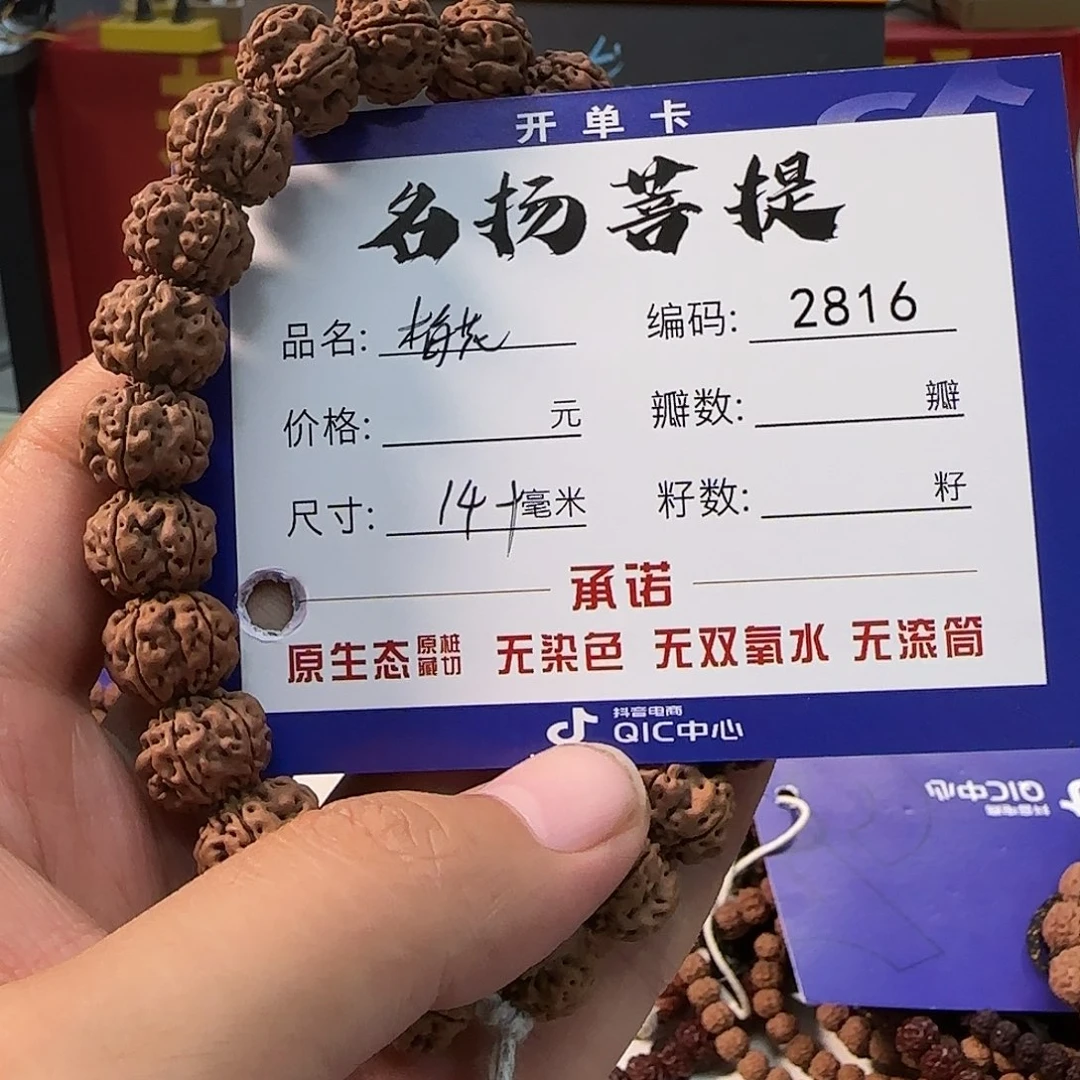 开单卡
名扬菩提
品名: 梅花 编码: 2816
价格: 元 瓣数: 瓣
尺寸: 14+毫米 籽数: 籽
承诺
原生态 原桩藏切 无染色 无双氧水 无滚筒
抖音电商
QIC中心
QIC中心
抖音电商